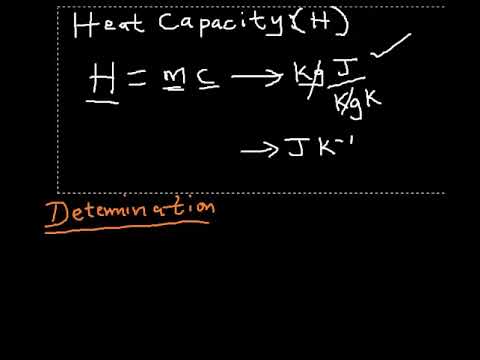 Heat Capacity:(H)
H = m c → kg J/kgK
→ J K⁻¹
Determination